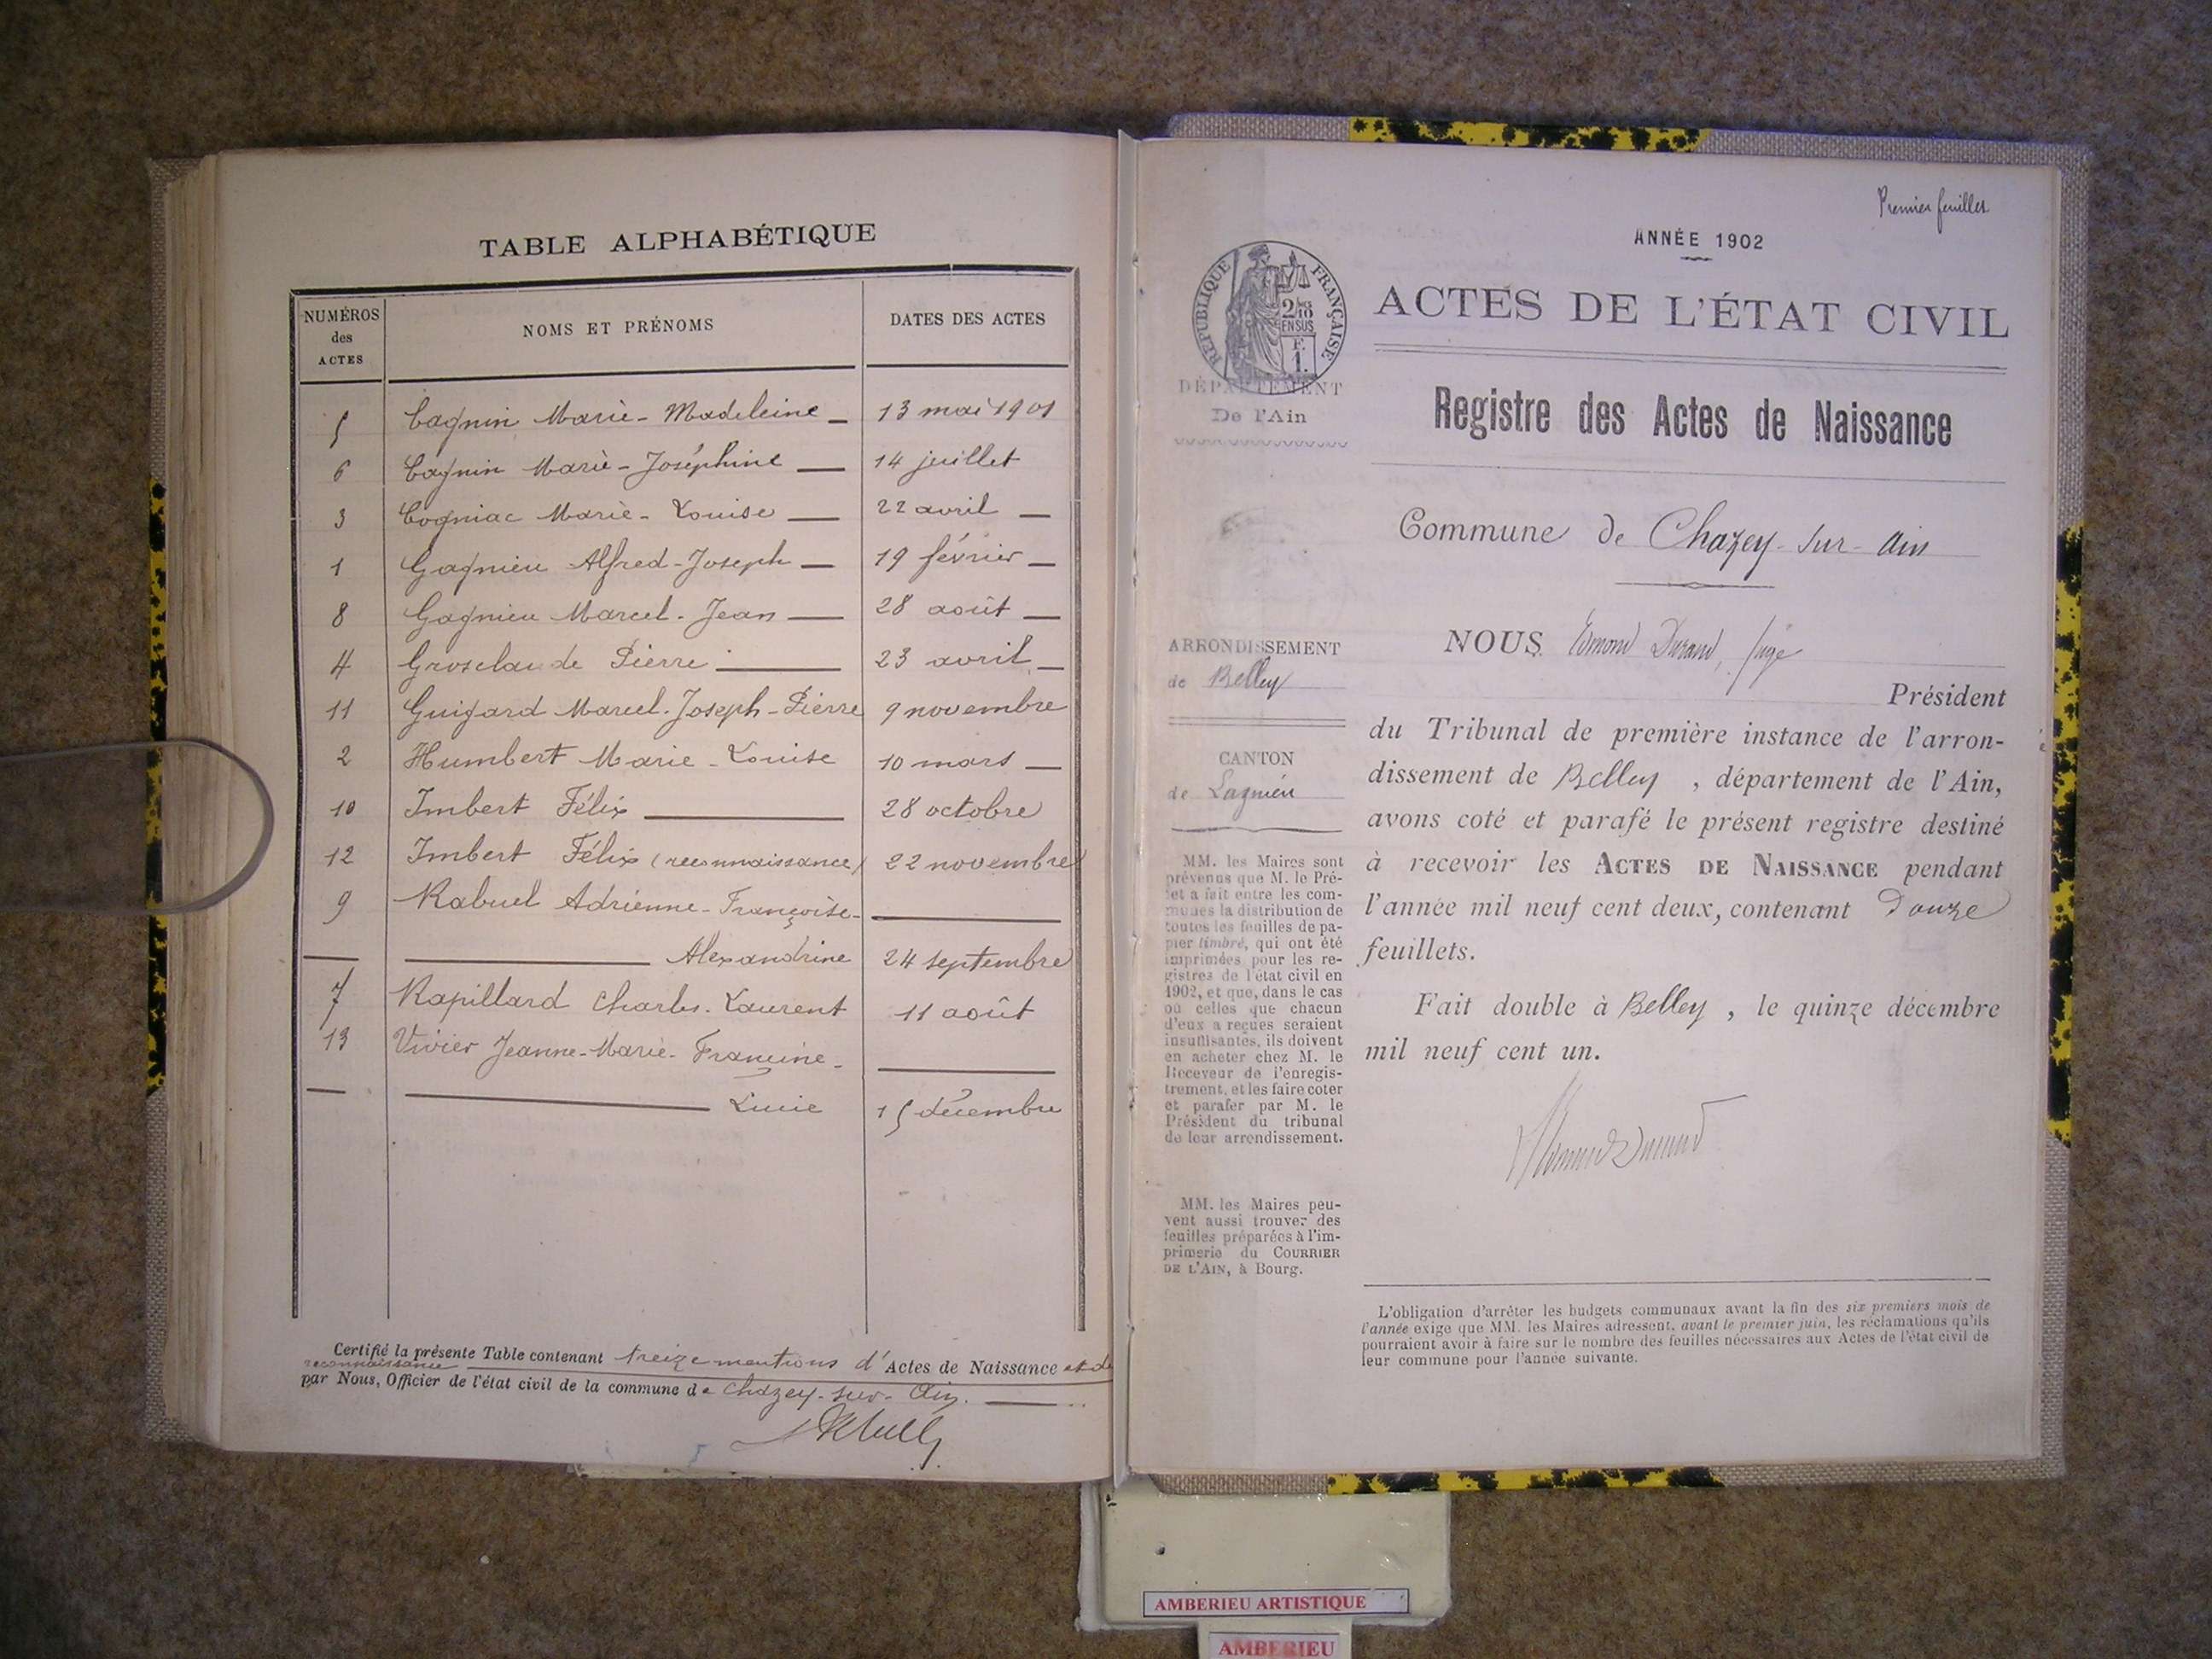 TABLE ALPHABÉTIQUE
NUMÉROS des ACTES
NOMS ET PRÉNOMS
DATES DES ACTES
5 Cagnin Marie-Madeleine — 13 mai 1901
6 Cagnin Marie-Joséphine — 14 juillet
3 Cogniac Marie-Louise — 22 avril —
1 Gagnieu Alfred-Joseph — 19 février —
8 Gagnieu Marcel-Jean — 28 août —
4 Groselaude Pierre — 23 avril —
11 Guigard Marcel-Joseph-Pierre 9 novembre
2 Humbert Marie-Louise 10 mars —
10 Imbert Félix — 28 octobre
12 Imbert Félix (reconnaissance) 22 novembre
9 Rabuel Adrienne-Françoise- —
— — Alexandrine 24 septembre
7 Rapillard Charles-Laurent 11 août
13 Vivier Jeanne-Marie-Francine- —
— — Lucie 15 décembre
Certifié la présente Table contenant treize mentions d'Actes de Naissance et de
reconnaissance —
par Nous, Officier de l'état civil de la commune de Chazey-sur-Ain. —
Premier feuillet
ANNÉE 1902
ACTES DE L'ÉTAT CIVIL
RÉPUBLIQUE FRANÇAISE
2/10 EN SUS
F. 1.
DÉPARTEMENT
De l'Ain
Registre des Actes de Naissance
Commune de Chazey-sur-Ain
ARRONDISSEMENT
de Belley
CANTON
de Lagnieu
MM. les Maires sont
prévenus que M. le Pré-
fet a fait entre les com-
munes la distribution de
toutes les feuilles de pa-
pier timbré, qui ont été
imprimées pour les re-
gistres de l'état civil en
1902, et que, dans le cas
où celles que chacun
d'eux a reçues seraient
insuffisantes, ils doivent
en acheter chez M. le
Receveur de l'enregis-
trement, et les faire coter
et parafer par M. le
Président du tribunal
de leur arrondissement.
MM. les Maires peu-
vent aussi trouver des
feuilles préparées à l'im-
primerie du COURRIER
DE L'AIN, à Bourg.
NOUS Edmond Durand, juge
Président
du Tribunal de première instance de l'arron-
dissement de Belley, département de l'Ain,
avons coté et parafé le présent registre destiné
à recevoir les ACTES DE NAISSANCE pendant
l'année mil neuf cent deux, contenant Douze
feuillets.
Fait double à Belley, le quinze décembre
mil neuf cent un.
Edmond Durand
L'obligation d'arrêter les budgets communaux avant la fin des six premiers mois de
l'année exige que MM. les Maires adressent, avant le premier juin, les réclamations qu'ils
pourraient avoir à faire sur le nombre des feuilles nécessaires aux Actes de l'état civil de
leur commune pour l'année suivante.
AMBERIEU ARTISTIQUE
AMBERIEU